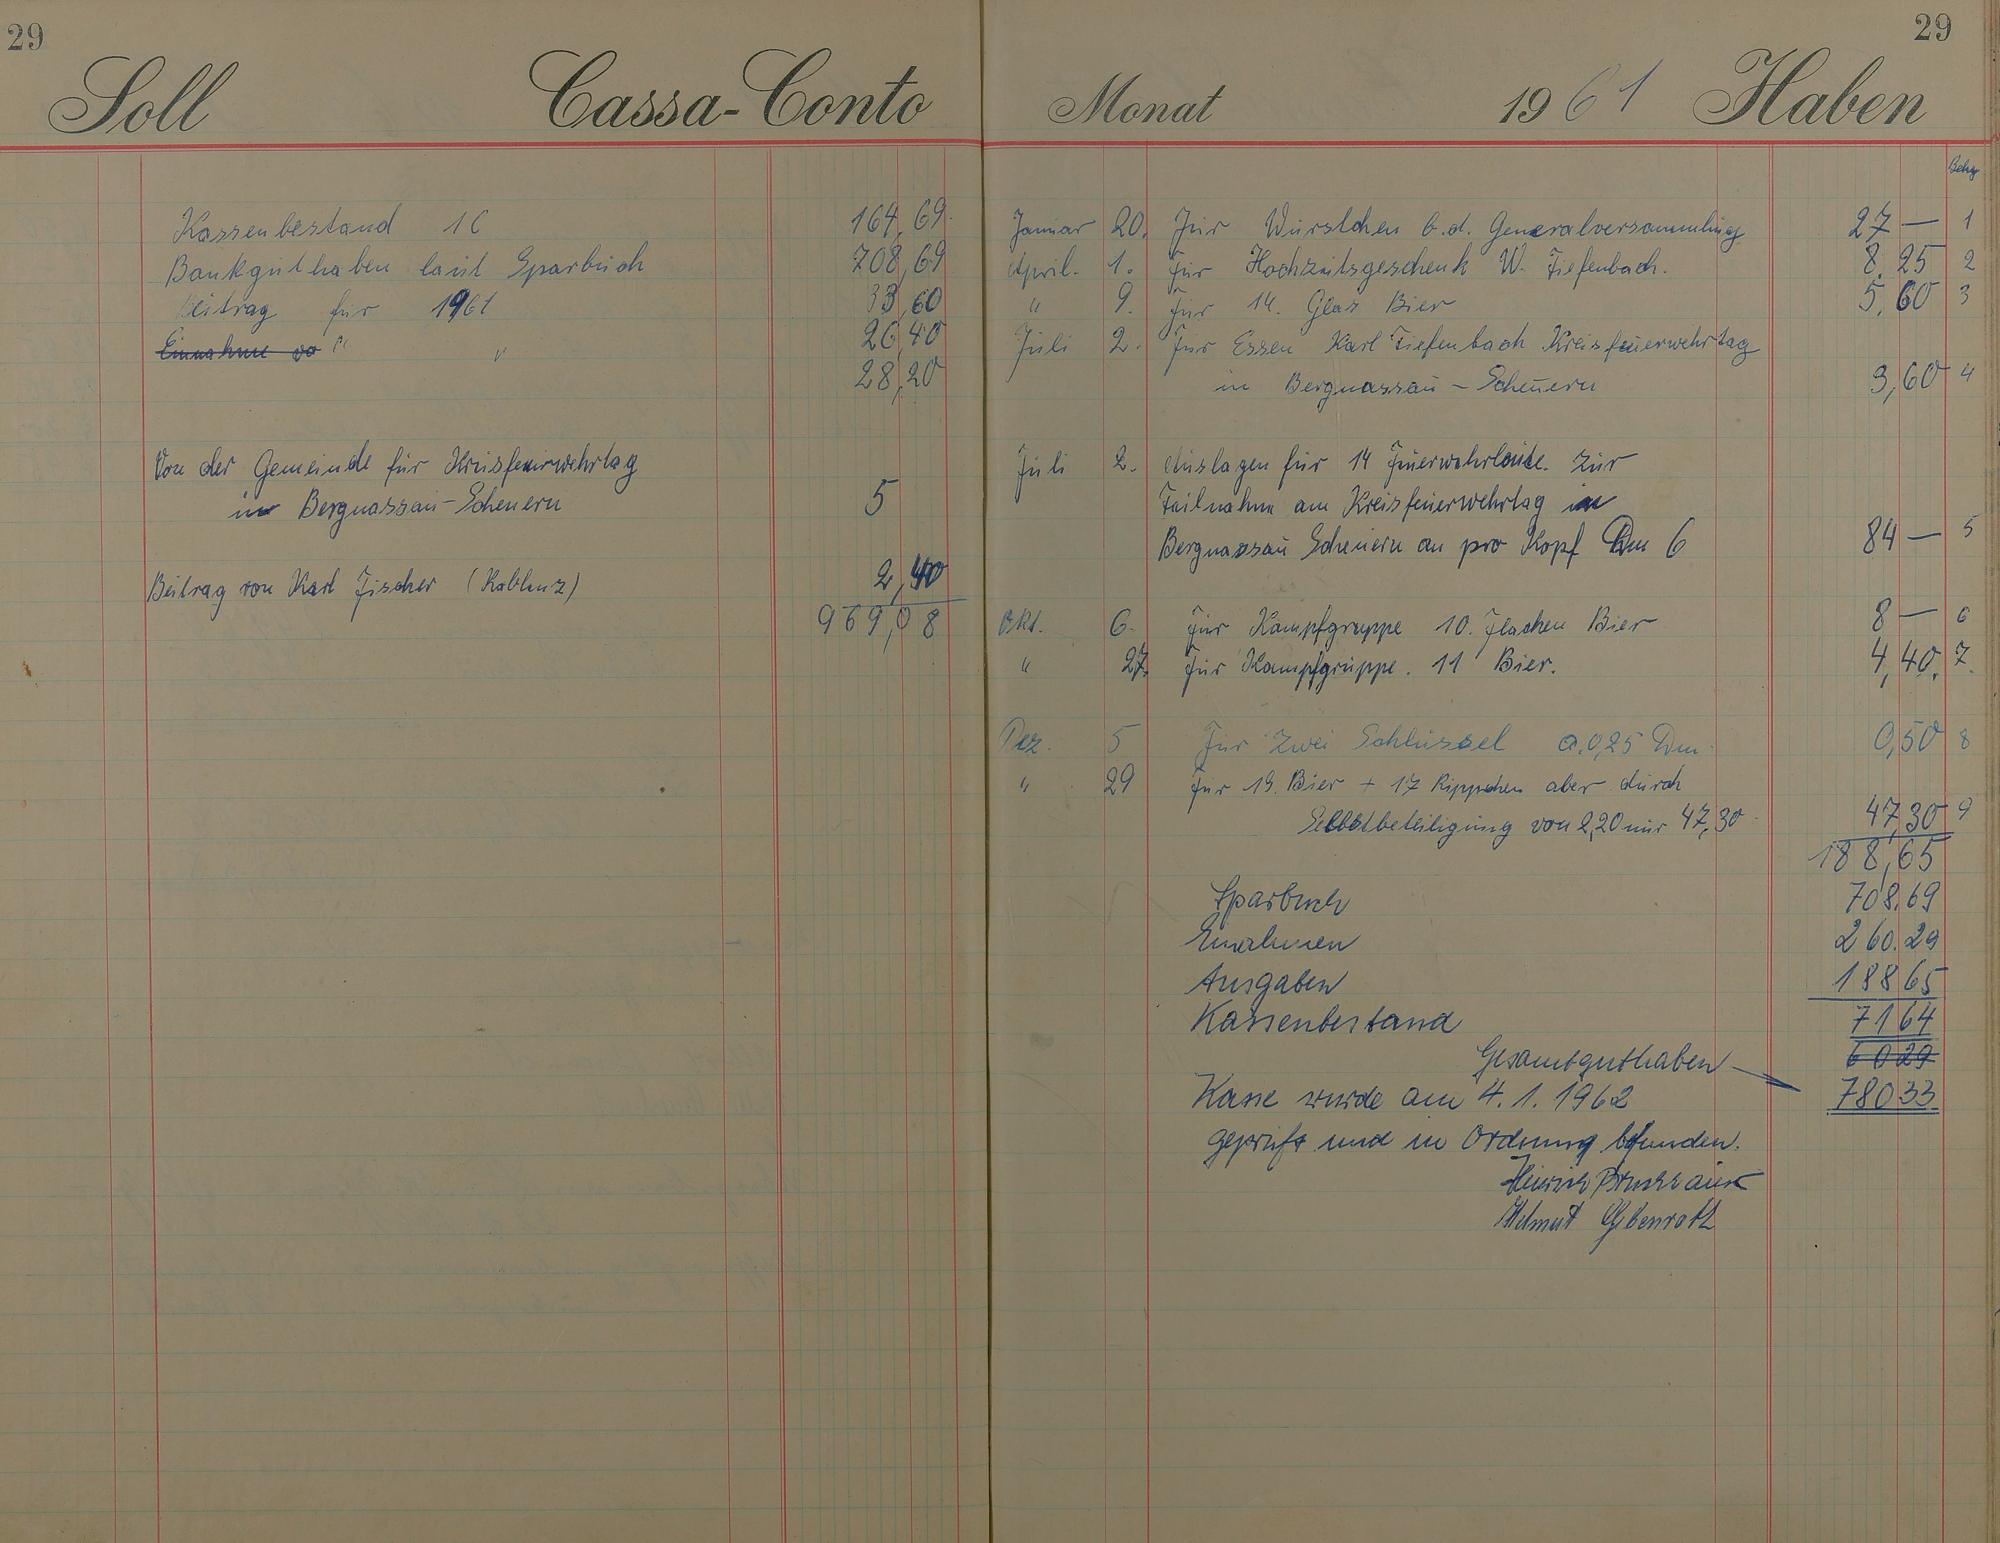 29
Soll Cassa-Conto
Kassenbestand 164,69
Bankguthaben laut Sparbuch 708,69
Beitrag für 1961 33,60
Einnahme vo " " 26,40
28,20
Von der Gemeinde für Kreisfeuerwehrtag
in Bergnassau-Scheuern 5
Beitrag von Karl Fischer (Koblenz) 2,40
969,08
29
Monat 1961 Haben
Belg
Januar 20. Für Würstchen b.d. Generalversammlung 27 — 1
April. 1. für Hochzeitsgeschenk W. Tiefenbach. 8,25 2
" 9. für 14. Glas Bier 5,60 3
Juli 2. Für Essen Karl Tiefenbach Kreisfeuerwehrtag
in Bergnassau - Scheuern 3,60 4
Juli 2. Auslagen für 14 Feuerwehrleute. Zur
Teilnahme am Kreisfeuerwehrtag in
Bergnassau Scheuern an pro Kopf Dm 6 84 — 5
Okt. 6. für Kampfgruppe 10. Flachen Bier 8 — 6
" 27. für Kampfgruppe. 11 Bier. 4,40. 7.
Dez. 5 Für Zwei Schlüssel a.0,25 Dm. 0,50 8
" 29 für 19. Bier + 17 Rippchen aber durch
Selbstbeteiligung von 2,20 nur 47,30 47,30 9
188,65
Sparbuch 708.69
Einahmen 260.29
Ausgaben 18865
Kassenbestand 7164
6029
Gesamtguthaben 78033
Kasse wurde am 4. 1. 1962
geprüft und in Ordnung befunden.
Heinrich
Helmut